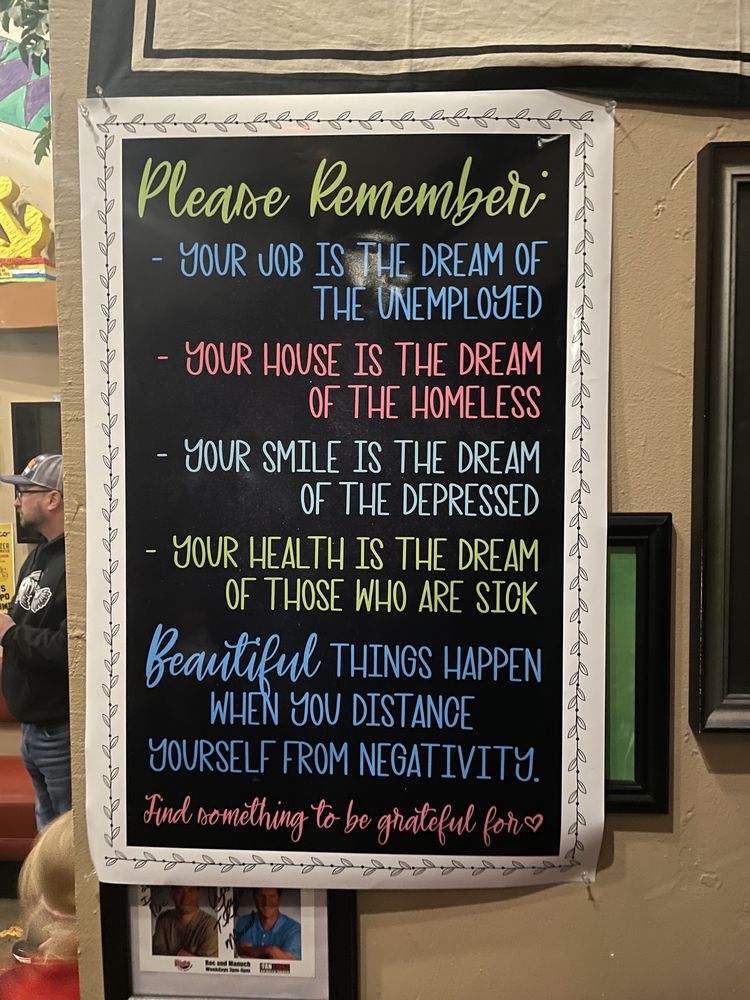 Please Remember:
- YOUR JOB IS THE DREAM OF
THE UNEMPLOYED
- YOUR HOUSE IS THE DREAM
OF THE HOMELESS
- YOUR SMILE IS THE DREAM
OF THE DEPRESSED
- YOUR HEALTH IS THE DREAM
OF THOSE WHO ARE SICK
Beautiful THINGS HAPPEN
WHEN YOU DISTANCE
YOURSELF FROM NEGATIVITY.
Find something to be grateful for♡
Roc and Manuch
Weekdays 3pm-6pm